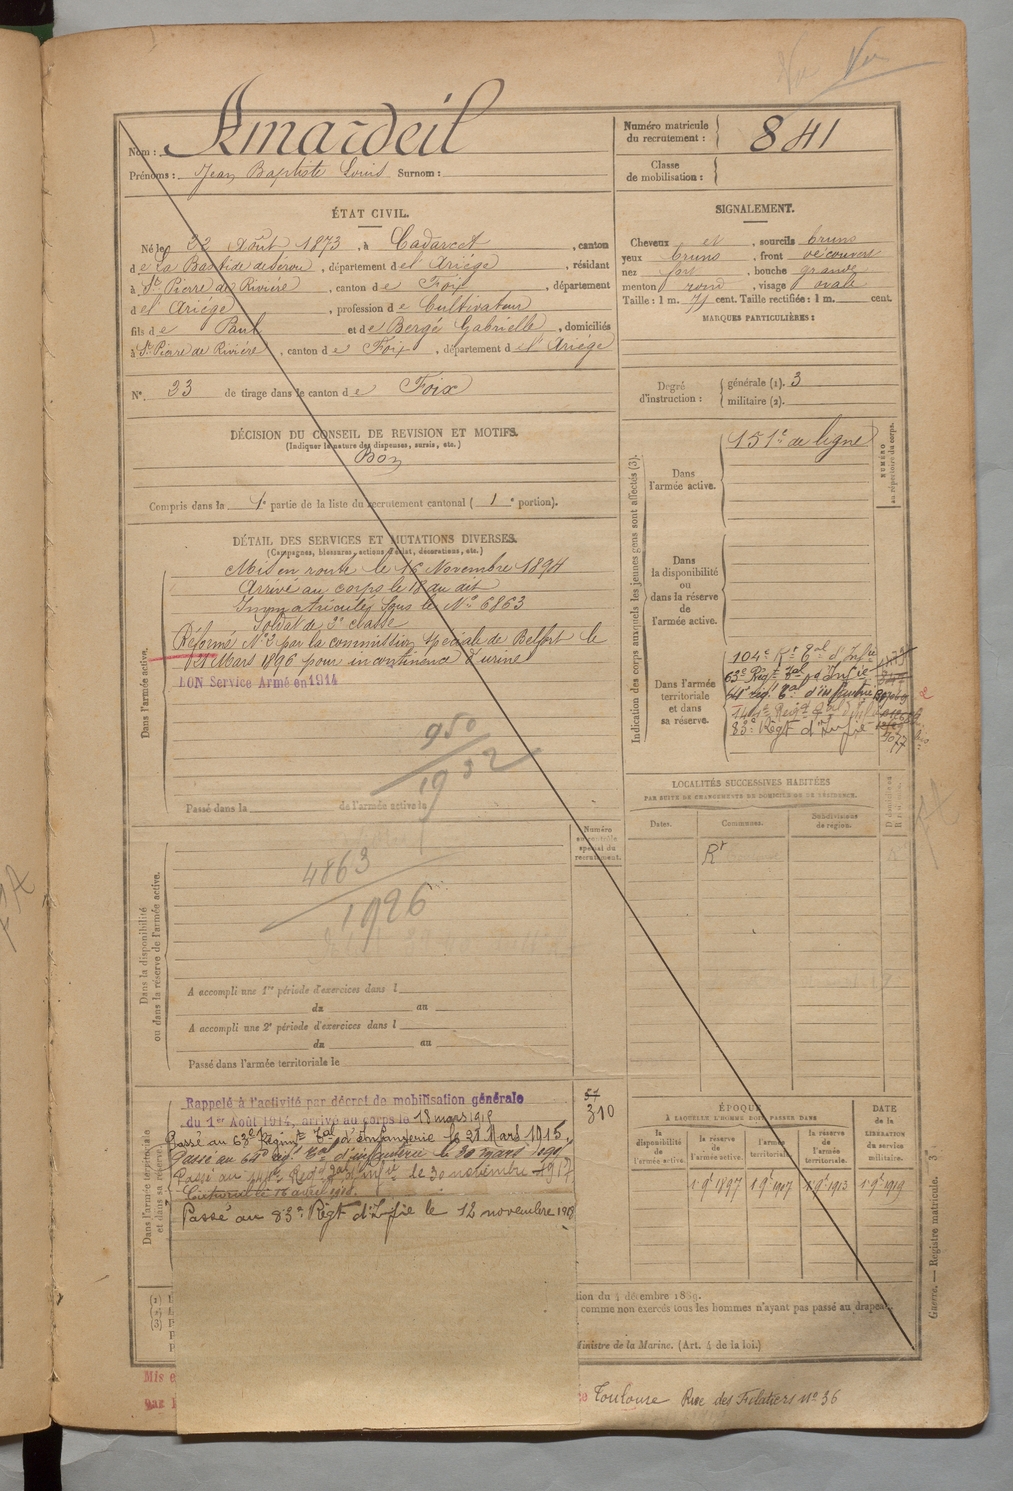 Nom : Amardeil
Prénoms : Jean Baptiste Louis Surnom :
Numéro matricule du recrutement : 841
Classe de mobilisation :
ÉTAT CIVIL.
Né le 22 Août 1873, à Cadarcet, canton
de La Bastide de Sérou, département de l'Ariége, résidant
à St Pierre de Rivière, canton de Foix, département
del Ariége, profession de Cultivateur
fils de Paul et de Bergé Gabrielle, domiciliés
à St Pierre de Riviére, canton de Foix, département de l'Ariége
N° 33 de tirage dans le canton de Foix
SIGNALEMENT.
Cheveux et, sourcils bruns
yeux bruns, front découvert
nez fort, bouche grande
menton rond, visage ovale
Taille : 1 m. 71 cent. Taille rectifiée : 1 m. cent.
MARQUES PARTICULIÈRES :
Degré d'instruction : générale (1). 3
militaire (2).
DÉCISION DU CONSEIL DE REVISION ET MOTIFS.
(Indiquer la nature des dispenses, sursis, etc.)
Bon
Compris dans la 1e partie de la liste du recrutement cantonal (1e portion).
DÉTAIL DES SERVICES ET MUTATIONS DIVERSES.
(Campagnes, blessures, actions d'éclat, décorations, etc.)
Dans l'armée active.
Mis en route le 16 Novembre 1894
Arrivé au corps le 18 du dit
Immatriculé sous le N° 6863
Soldat de 2e classe
Réformé N° 2 par la commission spéciale de Belfort le
Mars 1896 pour incontinence d'urine
BON Service Armé en 1914
950
1932
Passé dans la de l'armée active le
Indication des corps auxquels les jeunes gens sont affectés (3).
NUMÉRO au répertoire du corps.
Dans l'armée active.
151e de ligne
Dans la disponibilité ou dans la réserve de l'armée active.
Dans l'armée territoriale et dans sa réserve.
104e Rt Tal d'Infie
63e Régt Tal d'Infie
64e rég. Tal d'infanterie
83e Régt d'Infie
LOCALITÉS SUCCESSIVES HABITÉES
PAR SUITE DE CHANGEMENTS DE DOMICILE OU DE RÉSIDENCE.
Dates.
Communes.
Subdivisions de région.
Rt
Dans la disponibilité ou dans la réserve de l'armée active.
Numéro au contrôle spécial du recrutement.
4863
1926
A accompli une 1re période d'exercices dans l
du au
A accompli une 2e période d'exercices dans l
du au
Passé dans l'armée territoriale le
Dans l'armée territoriale et dans sa réserve.
Rappelé à l'activité par décret de mobilisation générale
du 1er Août 1914, arrivé au corps le 18 mars 1915
Passé au 63e Régimt Tal d'Infanterie le 21 Mars 1915.
Passé au 64e rég. Tal d'infanterie le 30 mars
le 30 novembre 1917
le 16 avril 1918.
Passé au 83e Régt d'Infie le 12 novembre 1918
310
ÉPOQUE
À LAQUELLE L'HOMME DOIT PASSER DANS
DATE DE LA LIBÉRATION du service militaire.
la disponibilité de l'armée active.
la réserve de l'armée active.
l'armée territoriale.
la réserve de l'armée territoriale.
1 9e 1897
1 9e 1907
1 9e 1913
1 9e 1919
(1)
(2)
(3)
tion du 4 décembre 1889.
comme non exercés tous les hommes n'ayant pas passé au drapeau.
Ministre de la Marine. (Art. 4 de la loi.)
Guerre. — Registre matricule. 3
Mis e
Par
Toulouse Rue des Filatiers n° 36